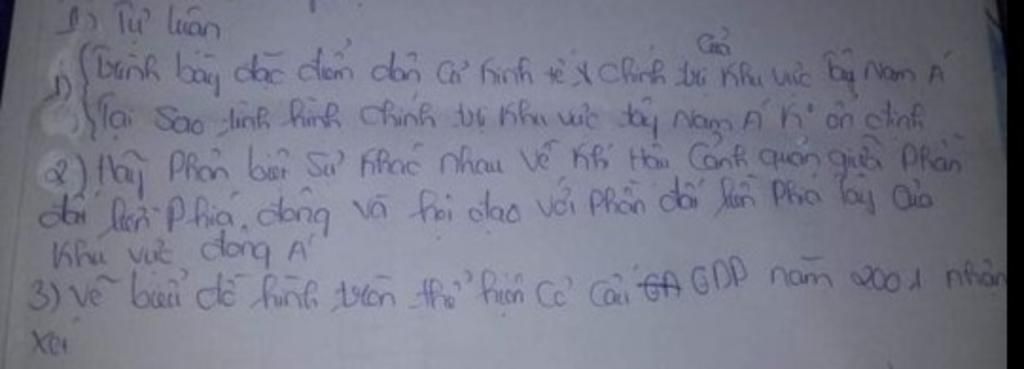 1) Tự luận
1) Trình bày đặc điểm dân cư kinh tế chính trị của khu vực Tây Nam Á
Tại sao tình hình chính trị khu vực tây Nam Á k° ổn định
2) Hãy Phân biệt Sự khác nhau về khí Hậu Cảnh quan giữa Phần
đất liền Phía đông và hải đảo với phần đất liền Phía Tây của
khu vực đông Á
3) vẽ biểu đồ hình tròn thể hiện cơ cấu GDP năm 2001 nhận
xét